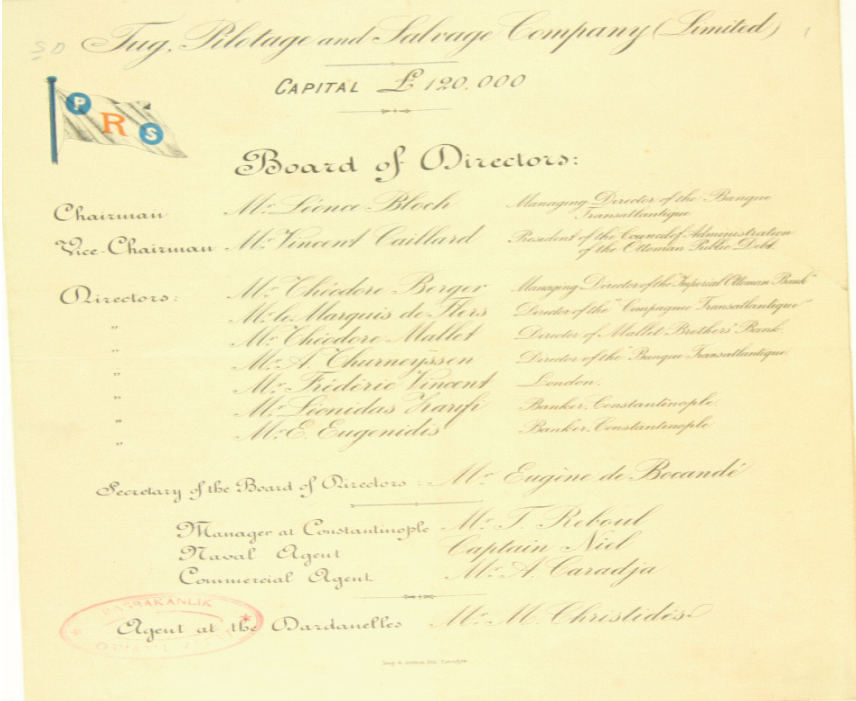 Tug, Pilotage and Salvage Company (Limited)
CAPITAL £ 120.000
P R S
Board of Directors:
Chairman Mr. Léonce Bloch Managing Director of the "Banque Transatlantique"
Vice-Chairman Mr. Vincent Caillard President of the Council of Administration of the Ottoman Public Debt.
Directors: Mr. Théodore Berger Managing Director of the "Imperial Ottoman Bank"
" Mr. le Marquis de Flers Director of the "Compagnie Transatlantique"
" Mr. Théodore Mallet Director of Mallet Brothers' Bank.
" Mr. A. Thurneyssen Director of the "Banque Transatlantique.
" Mr. Frédéric Vincent London.
" Mr. Léonidas Zarifi Banker, Constantinople.
" Mr. E. Eugenidis Banker, Constantinople.
Secretary of the Board of Directors: Mr. Eugène de Bocandé
Manager at Constantinople Mr. T. Reboul
Naval Agent Captain Niel
Commercial Agent Mr. A. Caradja
Agent at the Dardanelles Mr. M. Christidès